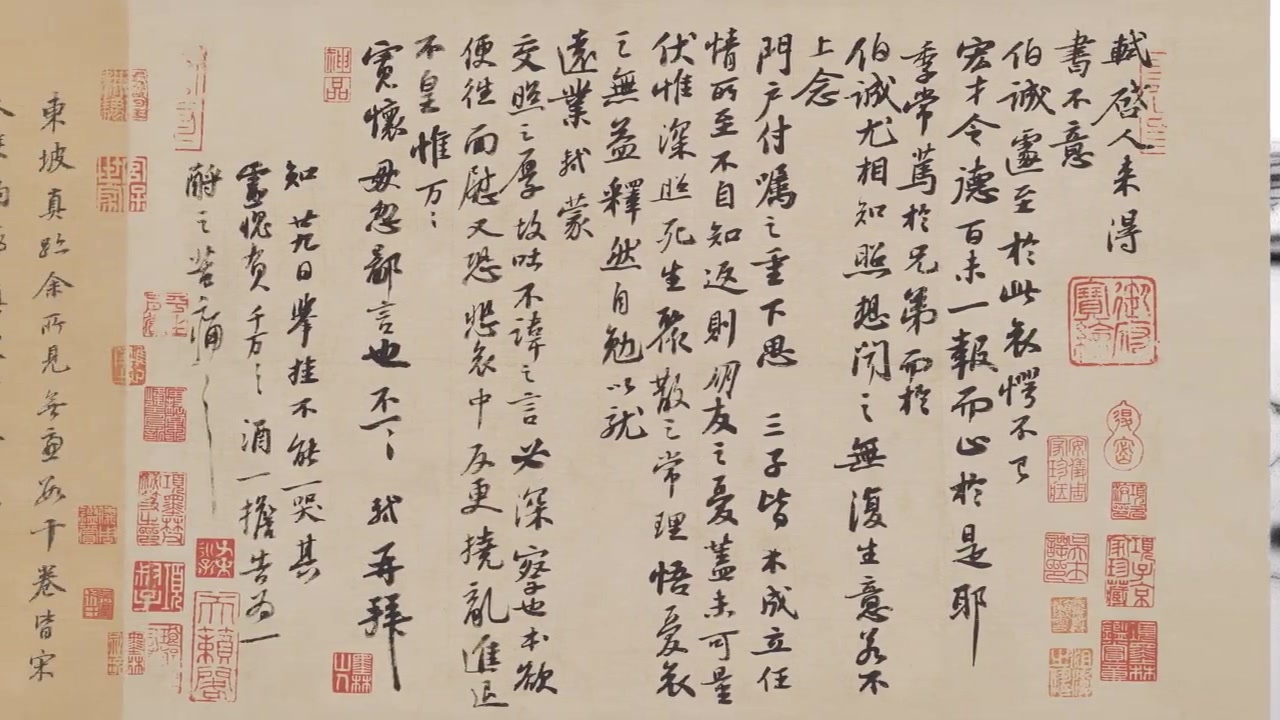 軾啓人來得
書不意
伯誠遽至於此哀愕不已
宏才令德百未一報而止於是耶
季常篤於兄弟而於
伯誠尤相知照想聞之無復生意若不
上念
門戶付囑之重下思三子皆未成立任
情所至不自知返則朋友之憂蓋未可量
伏惟深照死生聚散之常理悟憂哀
之無益釋然自勉以就
遠業軾蒙
交照之厚故吐不諱之言必深察也本欲
便往面慰又恐悲哀中反更撓亂進退
不皇惟万〻
寬懷毋忽鄙言也不一〻軾再拜
知廿九日舉掛不能一哭其
靈愧負千万〻酒一擔告為一
酹之苦痛〻
東坡真跡余所見無慮數十卷皆宋
御府寶繪
神品
項子京家珍藏
安儀周家珍藏
天籟閣